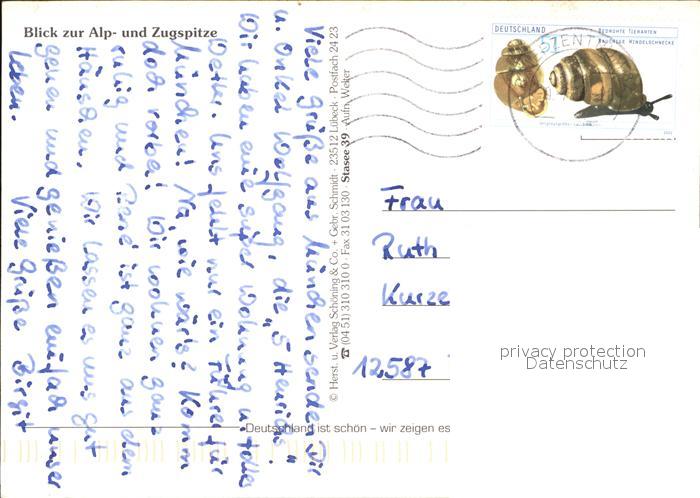 Blick zur Alp- und Zugspitze
Viele Grüße aus München sendet Dir
u. Onkel Wolfgang, die "5 Heurids".
Wir haben eine super Wohnung u. tolles
Wetter. Uns fehlt nur ein Führer für
München! Na, wie wär's? Komm
doch vorbei! Wir wohnen ganz
ruhig und René ist ganz aus dem
Häuschen. Wir lassen es uns gut
gehen und genießen einfach unser
Leben.
Viele Grüße Birgit
© Herst. u. Verlag Schöning & Co. + Gebr. Schmidt · 23512 Lübeck · Postfach 24 23
☎ (04 51) 310 310 0 · Fax 31 03 130 · Stasee 39 · Aufn. Welker
DEUTSCHLAND
51
BEDROHTE TIERARTEN
BAUCHIGE WINDELSCHNECKE
Frau
Ruth
Kurze
12587
Deutschland ist schön – wir zeigen es
privacy protection
Datenschutz